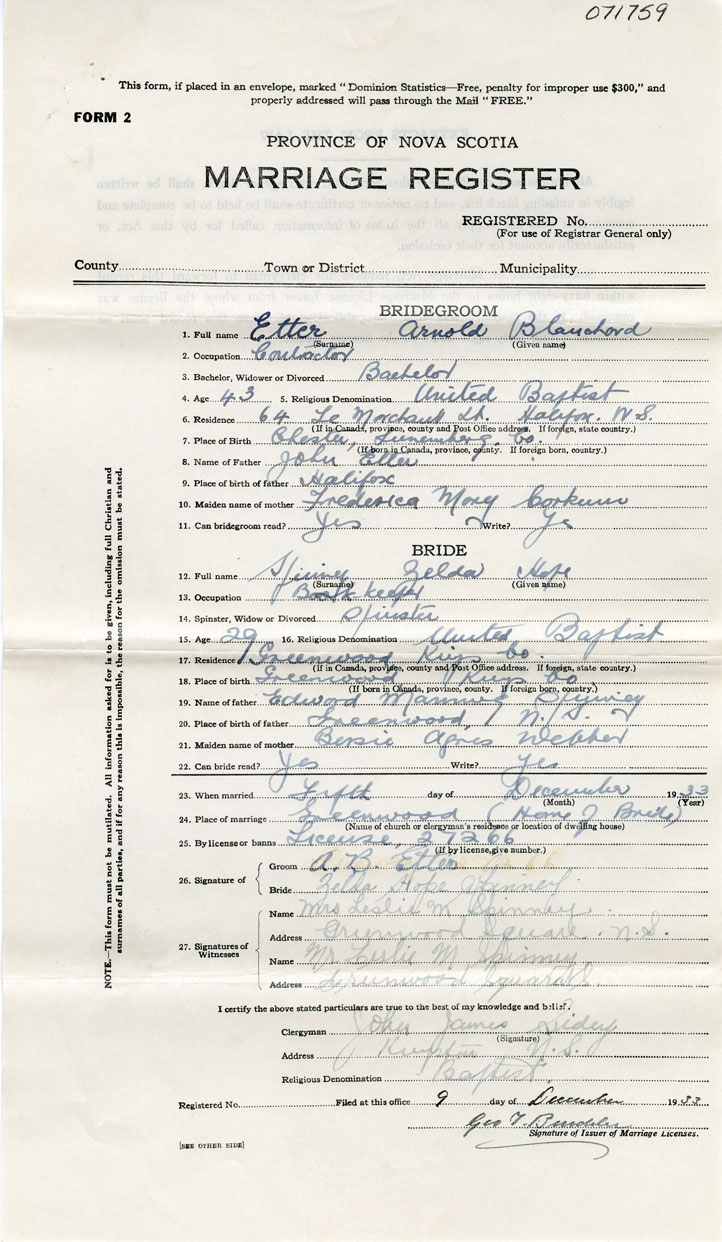 071759
This form, if placed in an envelope, marked "Dominion Statistics—Free, penalty for improper use $300," and
properly addressed will pass through the Mail "FREE."
FORM 2
PROVINCE OF NOVA SCOTIA
MARRIAGE REGISTER
REGISTERED No.
(For use of Registrar General only)
County Town or District Municipality
BRIDEGROOM
1. Full name Etter Arnold Blanchard
(Surname) (Given name)
2. Occupation Contractor
3. Bachelor, Widower or Divorced Bachelor
4. Age 43 5. Religious Denomination United Baptist
6. Residence 64 Le Marchant St. Halifax. N.S.
(If in Canada, province, county and Post Office address. If foreign, state country.)
7. Place of Birth Chester, Lunenburg, Co.
(If born in Canada, province, county. If foreign born, country.)
8. Name of Father John Etter
9. Place of birth of father Halifax
10. Maiden name of mother Frederica Mary Corkum
11. Can bridegroom read? Yes Write? Yes
BRIDE
12. Full name Spinney Zelda Hope
(Surname) (Given name)
13. Occupation Bookkeeper
14. Spinster, Widow or Divorced Spinster
15. Age 29 16. Religious Denomination United Baptist
17. Residence Greenwood Kings Co.
(If in Canada, province, county and Post Office address. If foreign, state country.)
18. Place of birth Greenwood Kings Co
(If born in Canada, province, county. If foreign born, country.)
19. Name of father Edward Manning Spinney
20. Place of birth of father Greenwood, N.S.
21. Maiden name of mother Bessie Agnes Webber
22. Can bride read? Yes Write? Yes
23. When married Fifth day of December 1933
(Month) (Year)
24. Place of marriage Greenwood (Home of Bride)
(Name of church or clergyman's residence or location of dwelling house)
25. By license or banns License, 27266
(If by license, give number.)
26. Signature of
Groom A. B. Etter
Bride Zelda Hope Spinney
27. Signatures of Witnesses
Name Mrs Leslie M Spinney
Address Greenwood Square. N.S.
Name Mr. Leslie M Spinney
Address Greenwood Square
I certify the above stated particulars are true to the best of my knowledge and belief.
Clergyman John James
(Signature)
Address Kingston N.S.
Religious Denomination Baptist
Registered No. Filed at this office 9 day of December 1933
Geo T.
Signature of Issuer of Marriage Licenses.
[SEE OTHER SIDE]
NOTE.—This form must not be mutilated. All information asked for is to be given, including full Christian and
surnames of all parties, and if for any reason this is impossible, the reason for the omission must be stated.